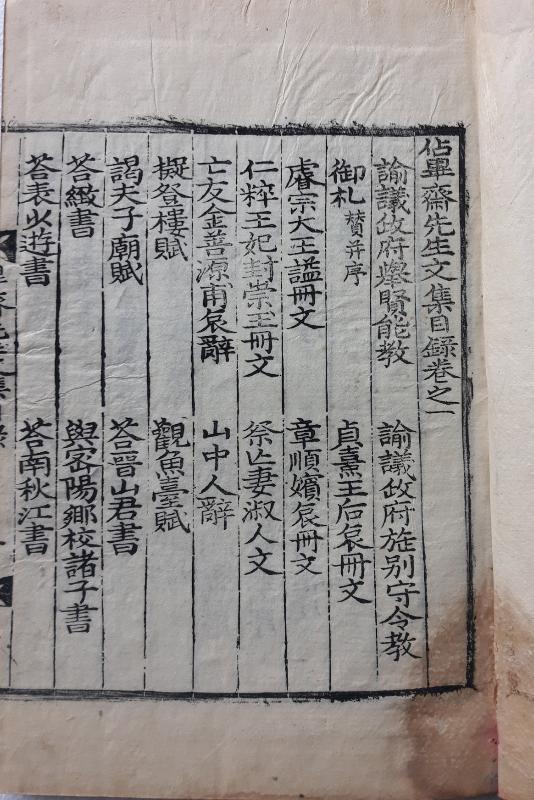 佔畢齋先生文集目錄卷之一
諭議政府擧賢能教 諭議政府旌別守令教
御札賛并序 貞熹王后哀冊文
睿宗大王諡冊文 章順嬪哀冊文
仁粹王妃封崇玉冊文 祭亡妻淑人文
亡友金善源甫哀辭 山中人辭
擬登樓賦 觀魚臺賦
謁夫子廟賦 荅晉山君書
荅緻書 與密陽鄉校諸子書
荅表少遊書 荅南秋江書